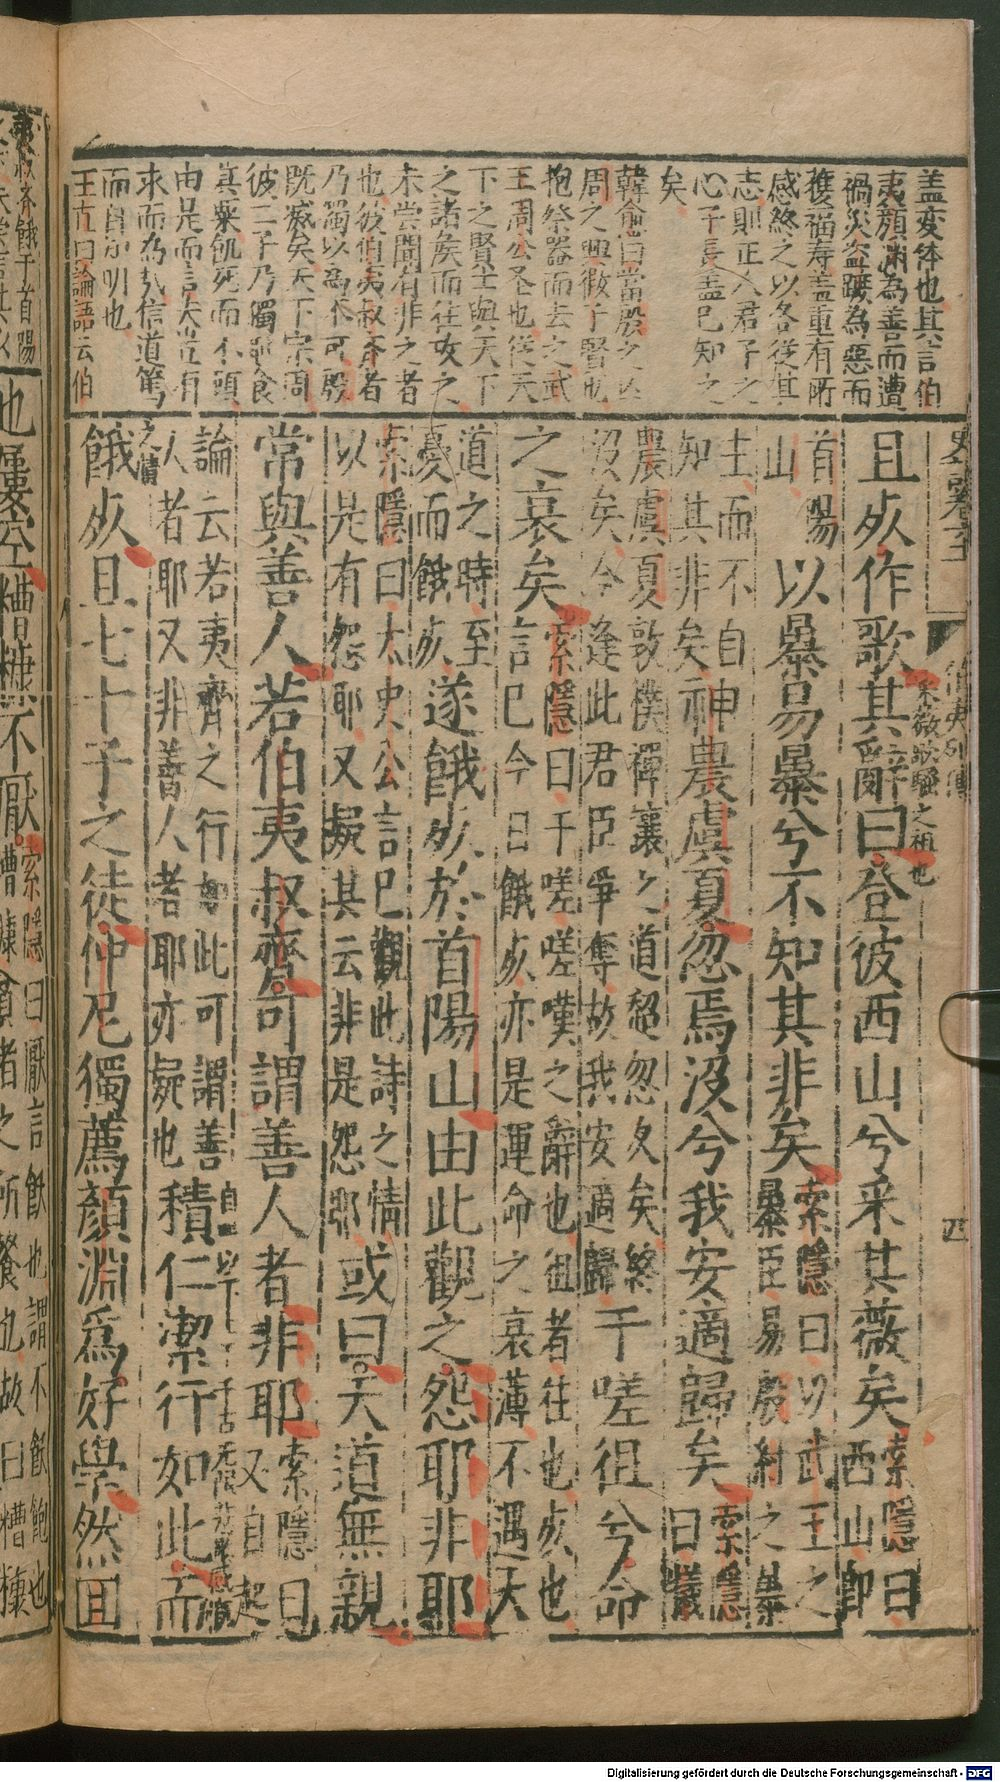 盖变体也其言伯
夷顏渊為善而遭
禍災盗蹠為惡而
獲福寿盖重有所
感終之以各從其
志則正人君子之
心子長盖已知之
矣
韓愈曰當殷之亡
周之興微子賢也
抱祭器而去之武
王周公圣也從天
下之賢士與天下
之諸矦而往攻之
未尝聞有非之者
也彼伯夷叔齐者
乃獨以為不可殷
既滅矣天下宗周
彼二子乃獨耻食
其粟飢死而不顧
由是而言夫豈有
求而為哉信道篤
而自知明也
王直曰論語云伯
且歺作歌其辭曰登彼西山兮采其薇矣索隱曰西山即
首陽山以暴易暴兮不知其非矣索隱曰以武王之暴臣易殷紂之暴
主而不自知其非矣神農虞夏忽焉沒兮我安適歸矣索隱曰羲
農虞夏敦樸禪讓之道超忽久矣終沒矣今逢此君臣爭奪故我安適歸于嗟徂兮命
之衰矣索隱曰于嗟嗟嘆之辭也徂者往也歺也言已今日餓歺亦是運命之衰薄不遇大
道之時至憂而餓歺遂餓歺於首陽山由此觀之怨耶非耶
索隱曰太史公言已觀此詩之情以是有怨耶又疑其云非是怨耶或曰天道無親
常與善人若伯夷叔齊可謂善人者非耶索隱曰又自起
論云若夷齊之行如此可謂善人者耶又非善人者耶亦疑也積仁潔行如此而
餓歺且七十子之徒仲尼獨薦顏淵爲好學然回
伯夷列傳
采薇歌騷之祖也
四
夷叔齐餓于首陽
也屢空糟糠不厭索隱曰厭言飫也謂不飫飽也糟糠貧者之所餐也故曰糟糠
Digitalisierung gefördert durch die Deutsche Forschungsgemeinschaft - DFG